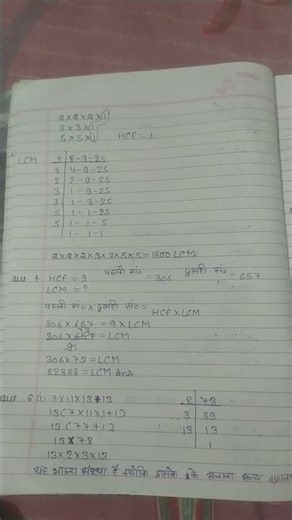 2×2×2×1
3×3×1
5×5×1 HCF = 1
LCM 2 | 8-9-25
2 | 4-9-25
2 | 2-9-25
3 | 1-9-25
3 | 1-3-25
5 | 1-1-25
5 | 1-1-5
1-1-1
2×2×2×3×3×5×5=1800 LCM
Ques 4. HCF = 9 पहली सं० = 306 दूसरी सं० = 657
LCM = ?
पहली सं० × दूसरी सं० = HCF × LCM
306×657 = 9×LCM
306×657 = LCM
9
306×73 = LCM
22338 = LCM Ans
Ques 6 (i) 7×11×13+13
13(7×11×1+1)
13(77+1)
13×78
13×2×3×13
2 | 78
3 | 39
13 | 13
1
यह भाज्य संख्या है क्योंकि इसके 1 के अलावा अन्य